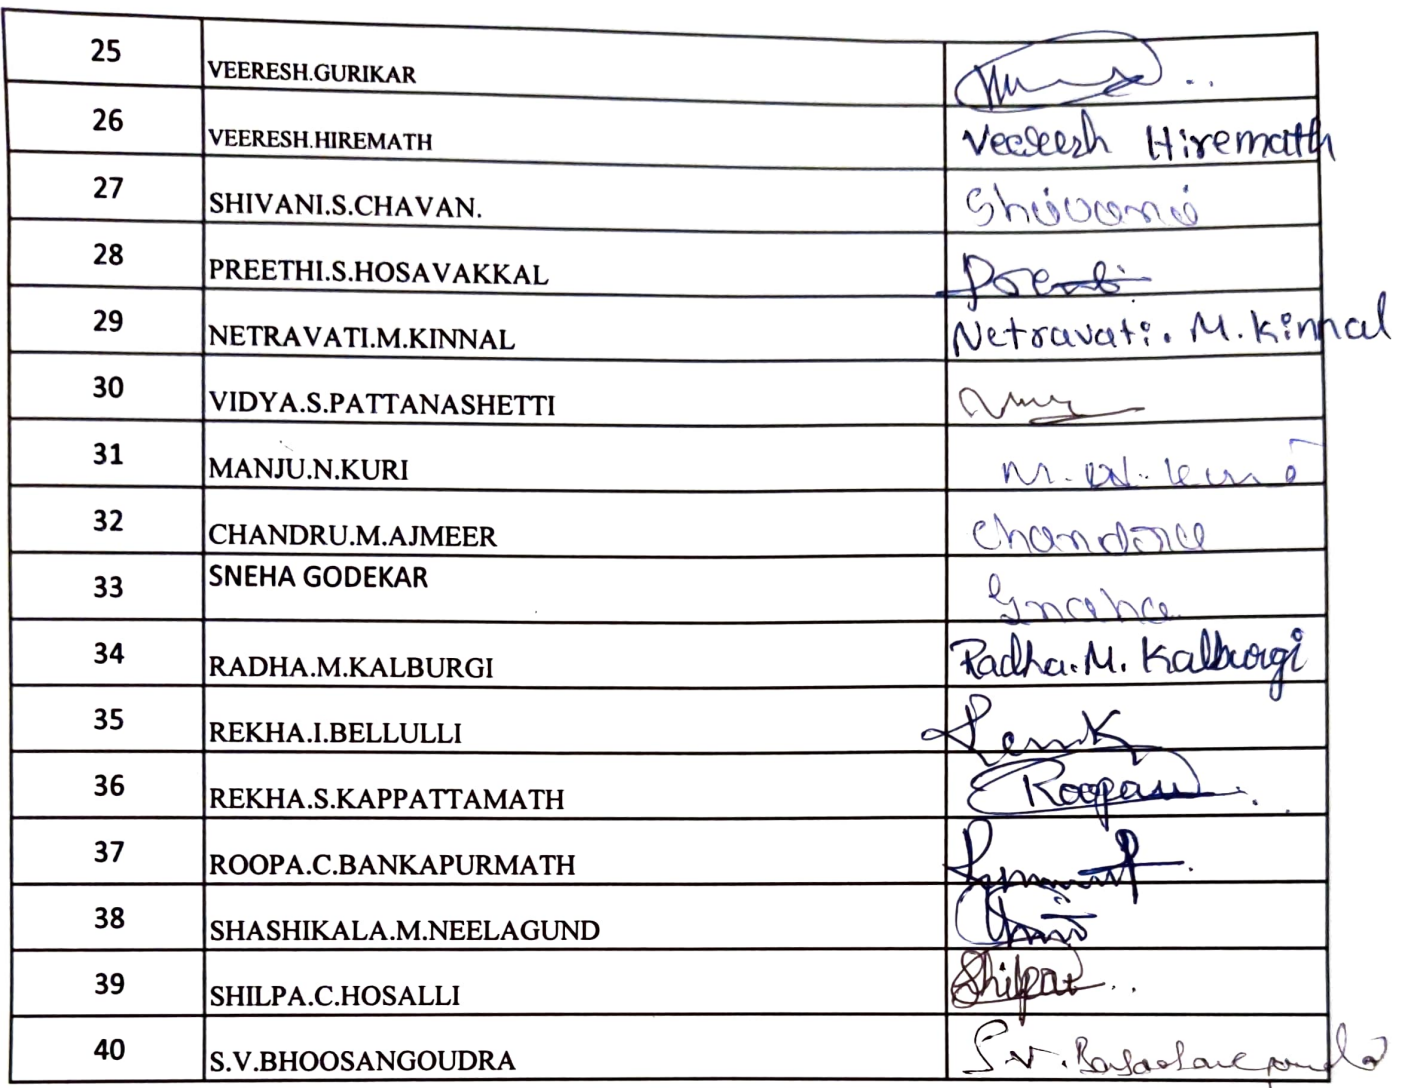 25 VEERESH.GURIKAR
26 VEERESH.HIREMATH Veeresh Hiremath
27 SHIVANI.S.CHAVAN. Shivani
28 PREETHI.S.HOSAVAKKAL
29 NETRAVATI.M.KINNAL Netravati. M. Kinnal
30 VIDYA.S.PATTANASHETTI
31 MANJU.N.KURI M. N. Kuri
32 CHANDRU.M.AJMEER Chandru
33 SNEHA GODEKAR Sneha
34 RADHA.M.KALBURGI Radha.M. Kalburgi
35 REKHA.I.BELLULLI
36 REKHA.S.KAPPATTAMATH
37 ROOPA.C.BANKAPURMATH
38 SHASHIKALA.M.NEELAGUND
39 SHILPA.C.HOSALLI Shilpa
40 S.V.BHOOSANGOUDRA S.V.